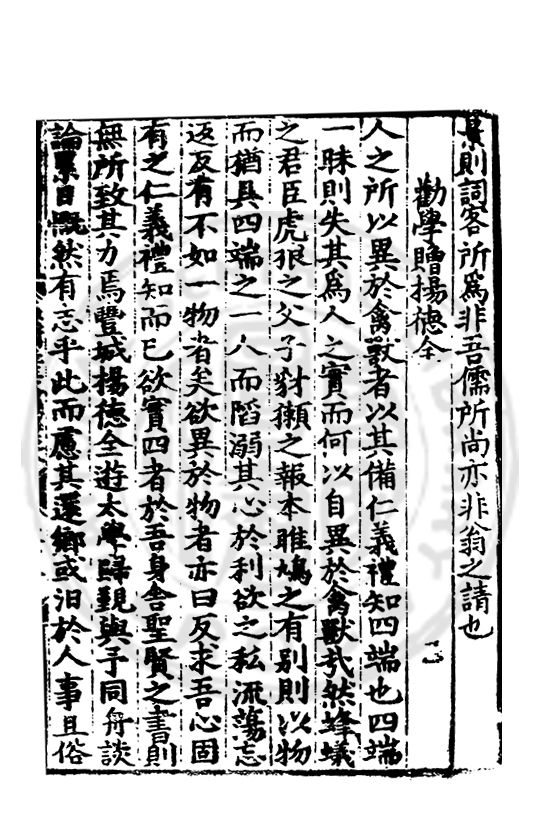 景則詞客所為非吾儒所尚亦非翁之請也
勸學贈楊德全
人之所以異於禽獸者以其備仁義禮知四端也四端
一昧則失其為人之實而何以自異於禽獸哉然蜂蟻
之君臣虎狼之父子豺獺之報本雎鳩之有别則以物
而猶具四端之一人而䧟溺其心於利欲之私流蕩忘
返反有不如一物者矣欲異於物者亦曰反求吾心固
有之仁義禮知而已欲實四者於吾身舎聖賢之書則
無所致其力焉豐城楊德全遊太學歸覲與予同舟談
論累日慨然有志乎此而慮其還鄉或汨於人事且俗